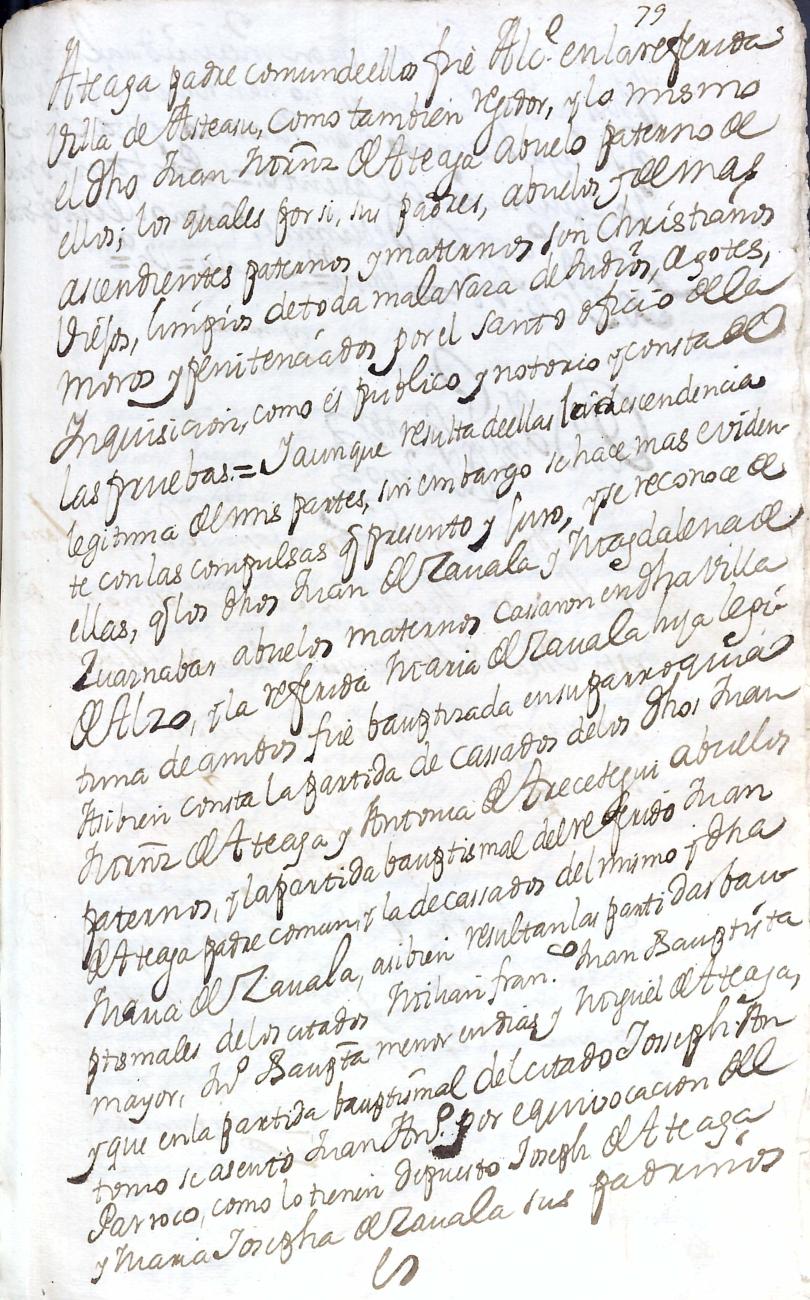 79
Ateaga padre comun de ellos fué Alce. en la referida
Villa de Asteasu, como tambien regidor, y lo mismo
el dho Juan Mrñz de Ateaga abuelo paterno de
ellos; los quales por si, sus padres, abuelos y demas
ascendientes paternos y maternos son Christianos
Viejos, limpios de toda mala raza de Judios, Agotes,
moros y penitenciados por el santo oficio de la
Inquisicion, como es publico y notorio y consta de
las pruebas.= Y aunque resulta de ellas la descendencia
legitima de mis partes, sin embargo se hace mas eviden-
te con las compulsas q presento y juro, y se reconoce de
ellas, q los dhos Juan de Zauala y Magdalena de
Yuarnabar abuelos maternos cassaron en dha Villa
de Alzo, y la referida Maria de Zauala hija legi-
tima de ambos fue bauptizada en su parroquia
Asibien consta la partida de cassados de los dhos Juan
Mrñz de Ateaga y Antonia de Arecetegui abuelos
paternos, y la partida bauptismal del referido Juan
de Ateaga padre comun, y la de cassados del mismo y dha
Maria de Zauala, asibien resultan las partidas bau-
ptismales de los citados Mrñ franco. Juan Bauptista
mayor, Jno Baupta menor en dias, y Miguel de Ateaga,
y que en la partida bauptismal del citado Joseph An
tonio se asentò Juan Anto. por equivocacion del
Parroco, como lo tienen depuesto Joseph de Ateaga
y Maria Josepha de Zauala sus padrinos